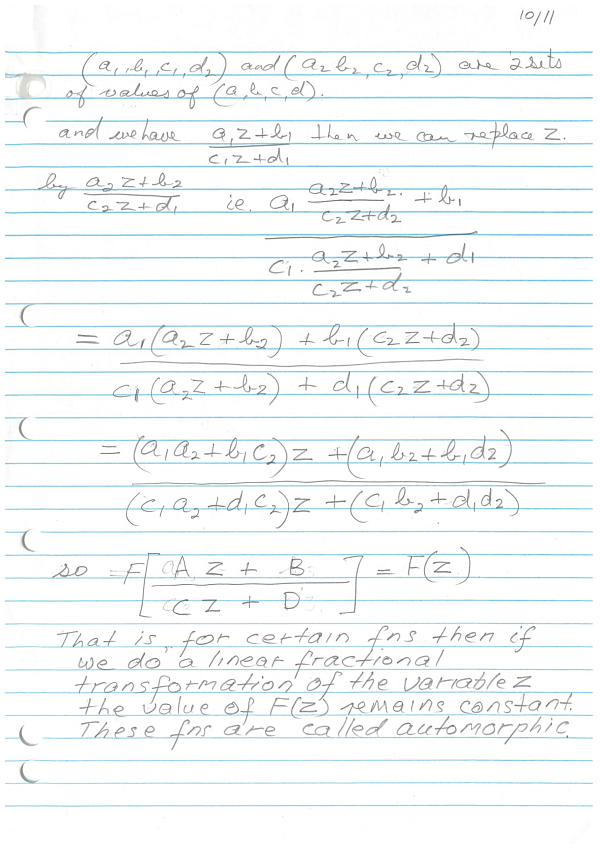 10/11
(a₁, b₁, c₁, d₂) and (a₂ b₂, c₂, d₂) are 2 sets
of values of (a, b, c, d).
and we have (a₁z+b₁)/(c₁z+d₁) then we can replace z.
by (a₂z+b₂)/(c₂z+d₁) ie. (a₁ (a₂z+b₂)/(c₂z+d₂) + b₁)/(c₁. (a₂z+b₂)/(c₂z+d₂) + d₁)
= (a₁(a₂z+b₂) + b₁(c₂z+d₂))/(c₁(a₂z+b₂) + d₁(c₂z+d₂))
= ((a₁a₂+b₁c₂)z + (a₁b₂+b₁d₂))/((c₁a₂+d₁c₂)z + (c₁b₂+d₁d₂))
so F[(Az + B)/(Cz + D)] = F(z)
That is, for certain fns then if
we do a linear fractional
transformation of the variable z
the value of F(z) remains constant.
These fns are called automorphic.